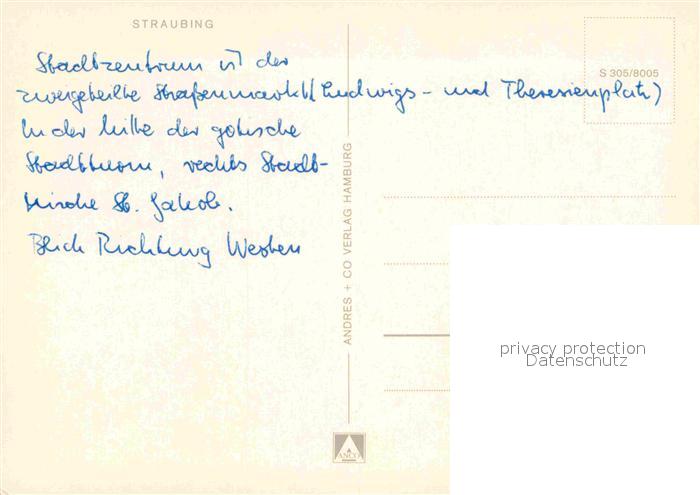 STRAUBING
Stadtzentrum ist der
zweigeteilte Straßenmarkt (Ludwigs- und Theresienplatz)
In der Mitte der gotische
Stadtturm, rechts Stadt-
kirche St. Jakob.
Blick Richtung Westen
S 305/8005
ANDRES + CO VERLAG HAMBURG
ANCO
privacy protection
Datenschutz